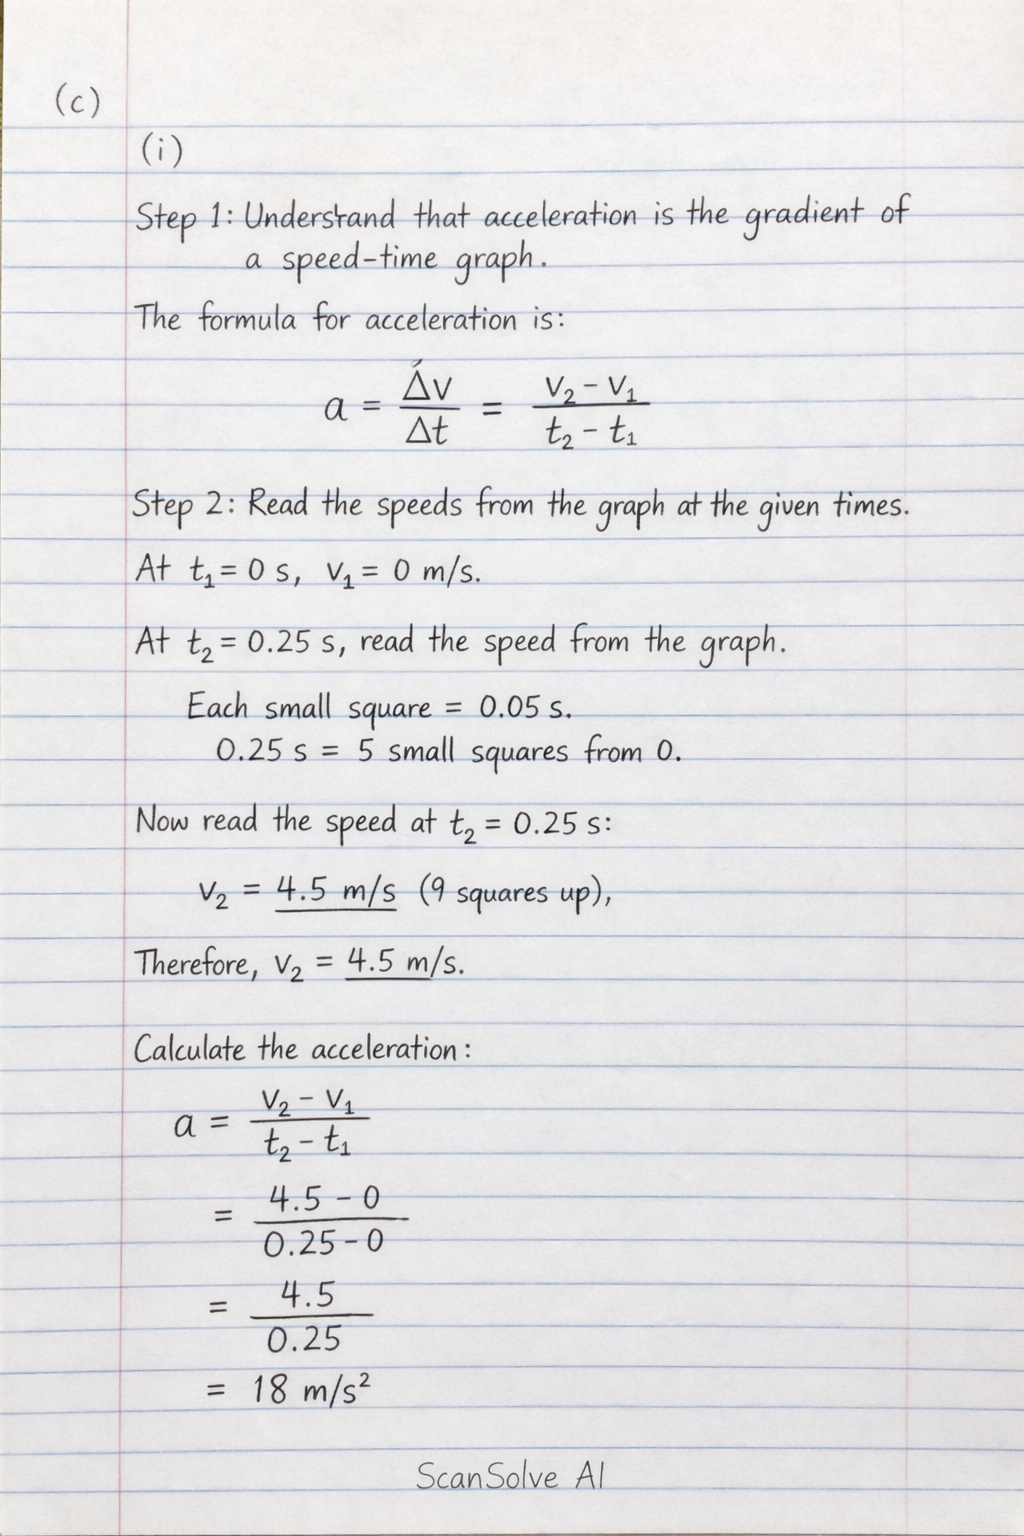 (c)
(i)
Step 1: Understand that acceleration is the gradient of
a speed-time graph.
The formula for acceleration is:
a = Δv/Δt = (v₂ - v₁)/(t₂ - t₁)
Step 2: Read the speeds from the graph at the given times.
At t₁ = 0 s, v₁ = 0 m/s.
At t₂ = 0.25 s, read the speed from the graph.
Each small square = 0.05 s.
0.25 s = 5 small squares from 0.
Now read the speed at t₂ = 0.25 s:
v₂ = 4.5 m/s (9 squares up),
Therefore, v₂ = 4.5 m/s.
Calculate the acceleration:
a = (v₂ - v₁)/(t₂ - t₁)
= (4.5 - 0)/(0.25 - 0)
= 4.5/0.25
= 18 m/s²
ScanSolve AI